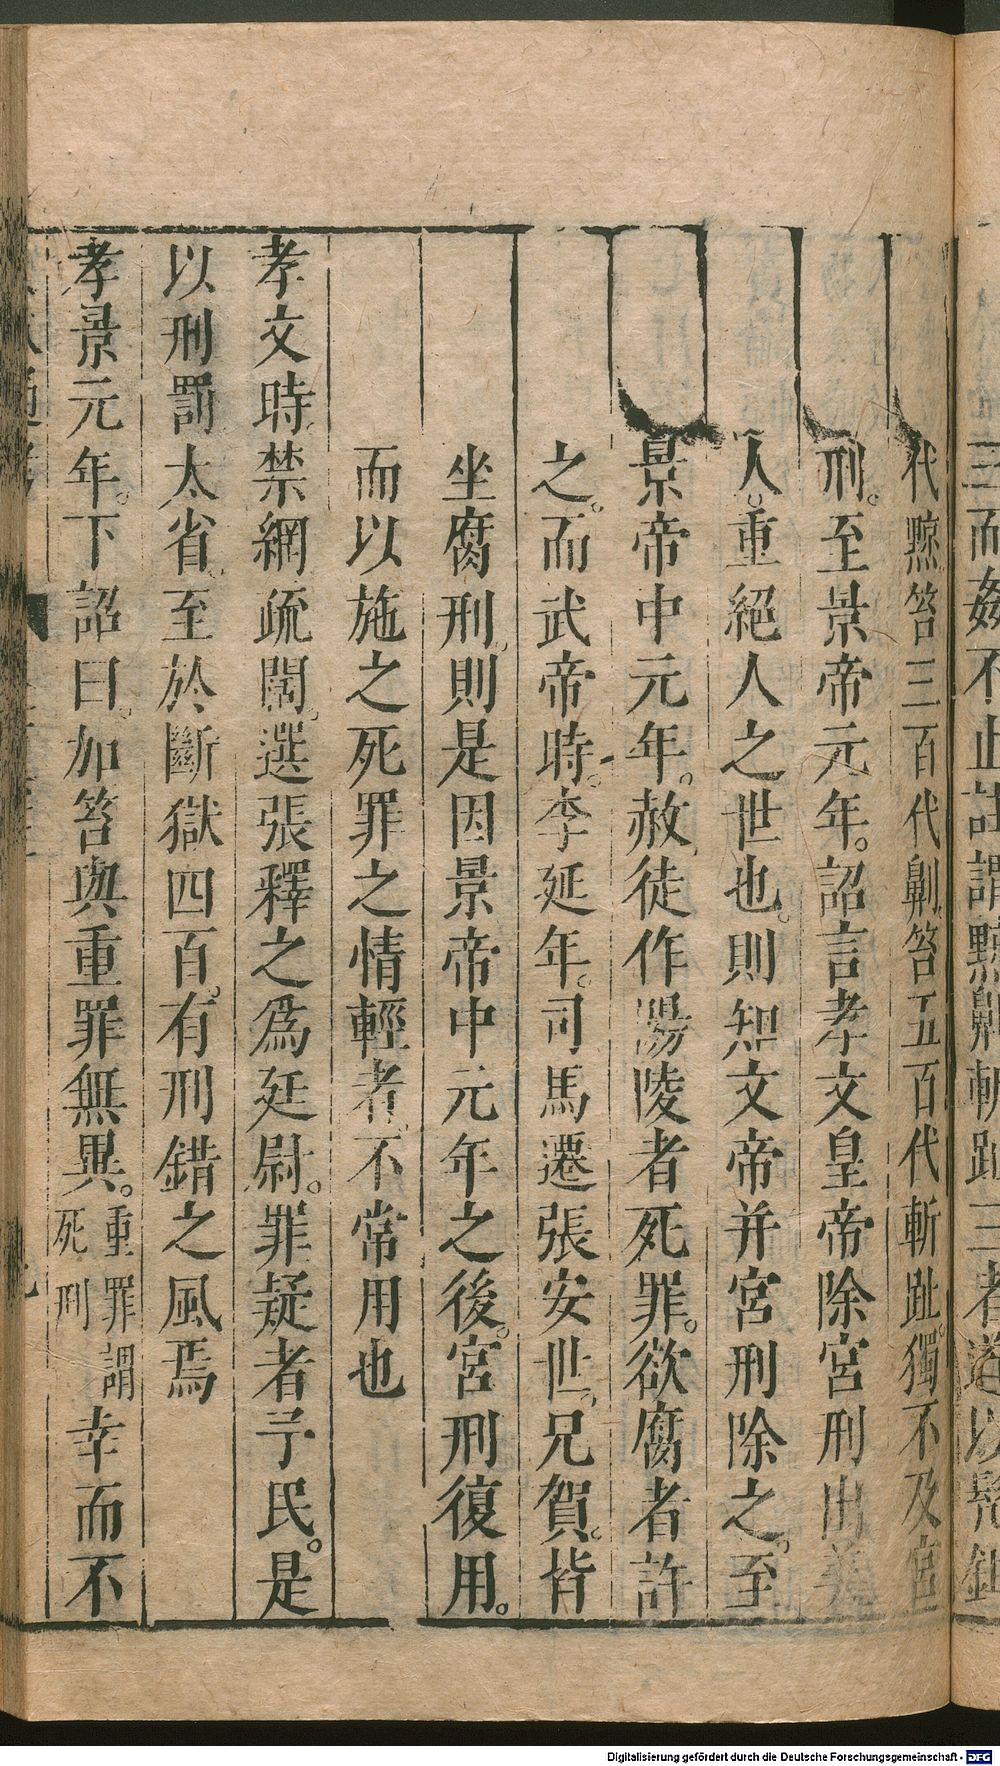 三而姦不止註謂黥劓斬趾三者遂以髡鉗
代黥笞三百代劓笞五百代斬趾。獨不及宮
刑。至景帝元年。詔言孝文皇帝除宮刑出美
人。重絕人之世也。則知文帝并宮刑除之。至
景帝中元年。赦徒作陽陵者死罪。欲腐者許
之。而武帝時。李延年。司馬遷張安世。兄賀。皆
坐腐刑。則是因景帝中元年之後。宮刑復用。
而以施之死罪之情輕者。不常用也
孝文時。禁網疏闊。選張釋之爲廷尉。罪疑者予民。是
以刑罰太省。至於斷獄四百。有刑錯之風焉
孝景元年。下詔曰。加笞與重罪無異。重罪謂死刑幸而不
Digitalisierung gefördert durch die Deutsche Forschungsgemeinschaft - DFG